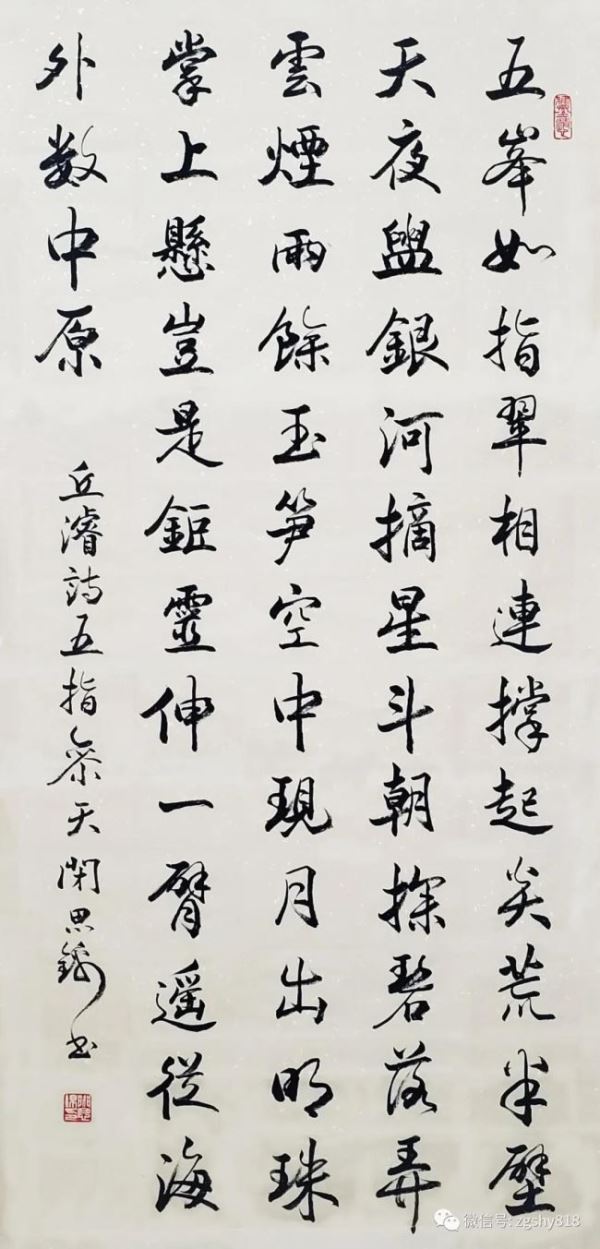 五峯如指翠相連撐起炎荒半壁
天夜盥銀河摘星斗朝探碧落弄
雲煙雨餘玉笋空中現月出明珠
掌上懸豈是鉅靈伸一臂遥從海
外数中原
丘濬詩五指參天 閑思錦书
微信号: zgshy818